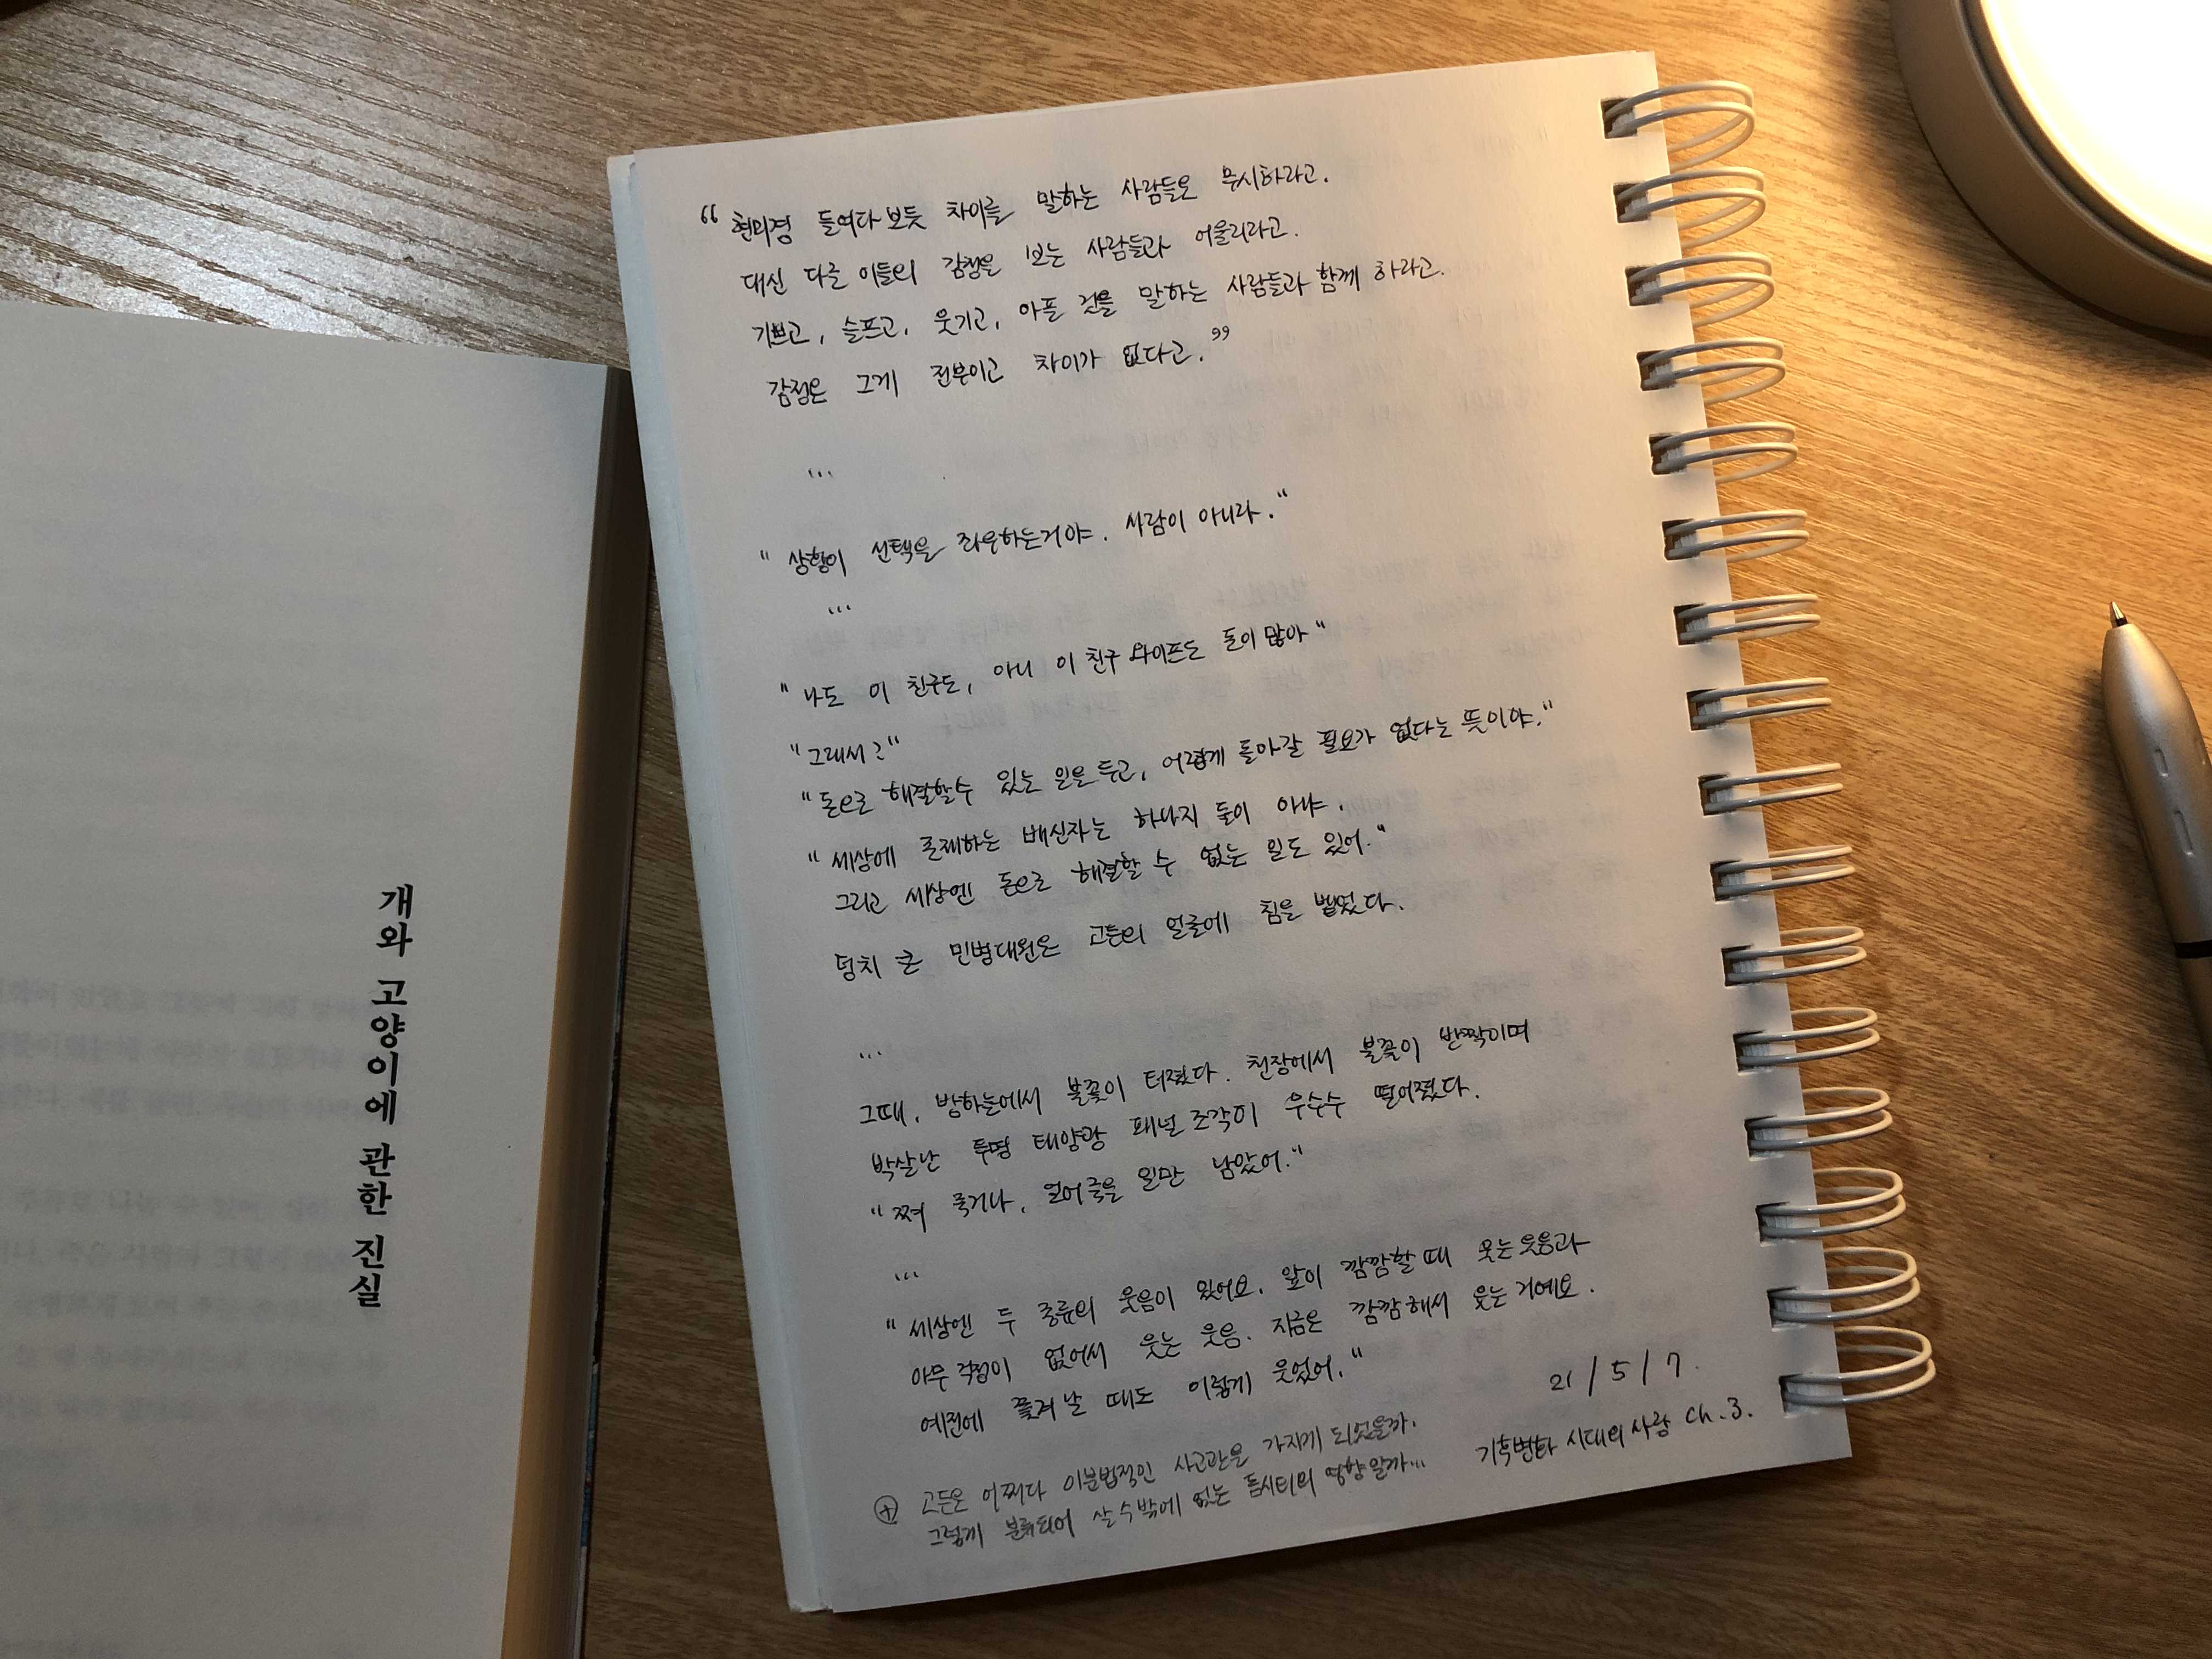 개와 고양이에 관한 진실
“ 현미경 들여다보듯 차이를 말하는 사람들은 무시하라고.
대신 다른 이들의 감정을 보는 사람들과 어울리라고.
기쁘고, 슬프고, 웃기고, 아픈 것을 말하는 사람들과 함께 하라고.
감정은 그게 전부이고 차이가 없다고.”
...
" 상황이 선택을 좌우하는거야. 사람이 아니라."
...
" 나도 이 친구도, 아니 이 친구 와이프도 돈이 많아"
"그래서?"
"돈으로 해결할수 있는 일을 두고, 어렵게 돌아갈 필요가 없다는 뜻이야."
" 세상에 존재하는 배신자는 하나지 둘이 아냐.
그리고 세상엔 돈으로 해결할 수 없는 일도 있어."
덩치 큰 민병대원은 고든의 얼굴에 침을 뱉었다.
...
그때, 방하눈에서 불꽃이 터졌다. 천장에서 불꽃이 반짝이며
박살난 투명 태양광 패널 조각이 우수수 떨어졌다.
" 쪄 죽거나, 얼어죽을 일만 남았어."
...
" 세상엔 두 종류의 웃음이 있어요. 앞이 깜깜할 때 웃는 웃음과
아무 걱정이 없어서 웃는 웃음. 지금은 깜깜해서 웃는 거예요.
예전에 쫓겨날 때도 이렇게 웃었어."
21/5/7.
기후변화 시대의 사랑 Ch.3.
⊕ 고든은 어쩌다 이분법적인 사고관을 가지게 되었을까.
그렇게 분류되어 살 수밖에 없는 돔시티의 영향일까...